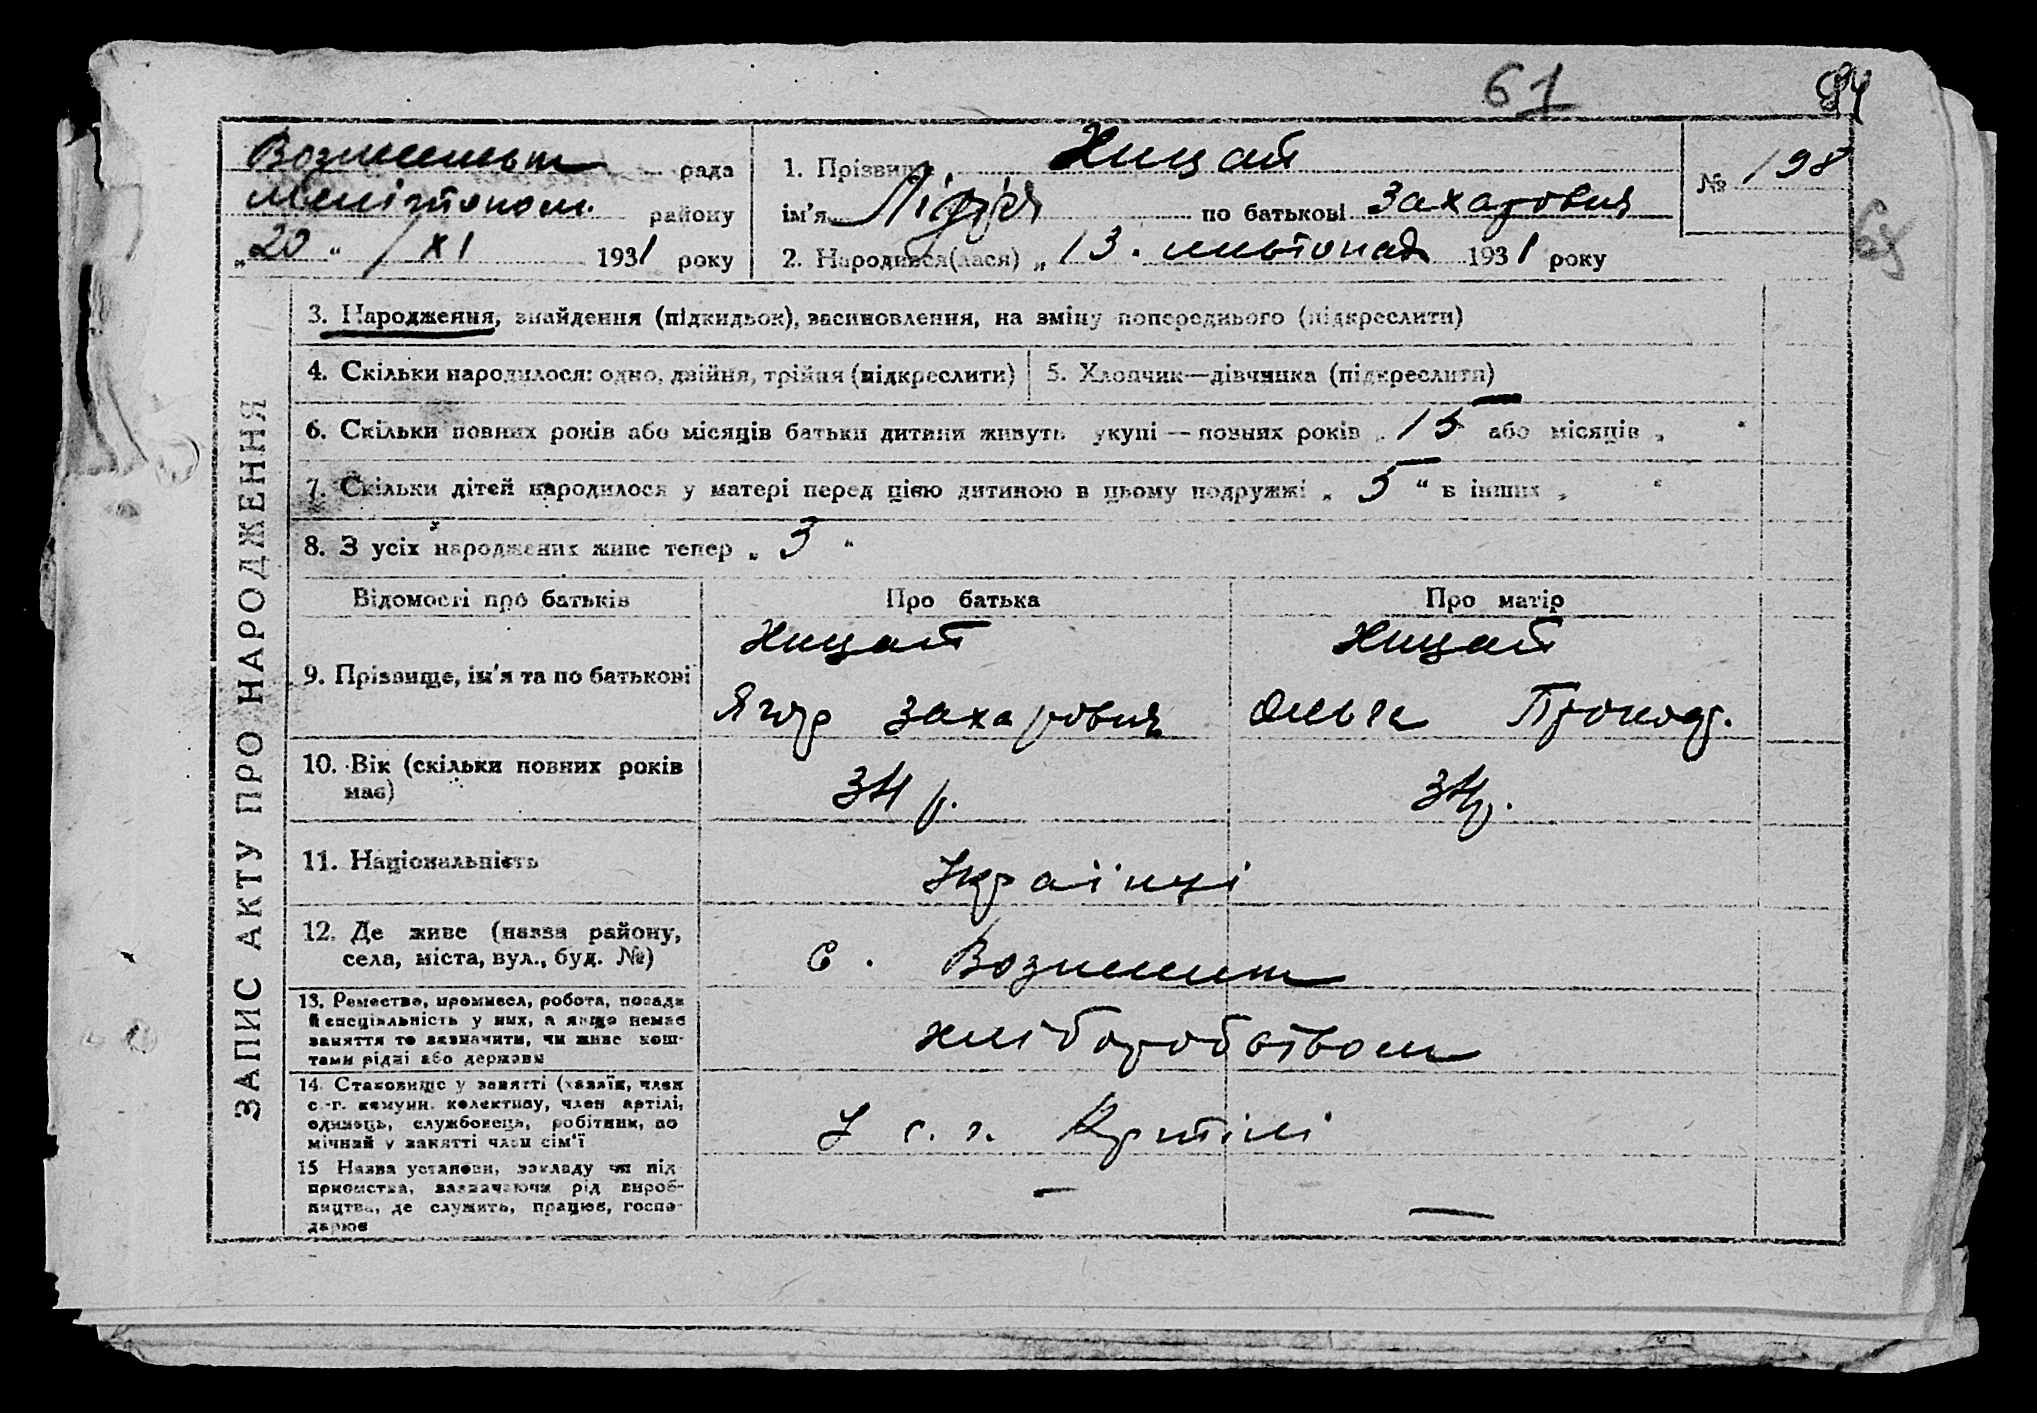 61
84
Вознесенська рада
Мелітопольськ. району
„20“ / XI 1931 року
1. Прізвище Хицай
ім'я Лідія по батькові Захаровня
2. Народився(лася) „13. листопада 1931 року
№ 198
ЗАПИС АКТУ ПРО НАРОДЖЕННЯ
3. Народження, знайдення (підкидьок), засиновлення, на зміну попереднього (підкреслити)
4. Скільки народилося: одно, двійня, трійня (підкреслити)
5. Хлопчик—дівчинка (підкреслити)
6. Скільки повних років або місяців батьки дитини живуть укупі — повних років „15 або місяців „ “
7. Скільки дітей народилося у матері перед цією дитиною в цьому подружжі „5“ в інших „ “
8. З усіх народжених живе тепер „3“
Відомості про батьків Про батька Про матір
9. Прізвище, ім'я та по батькові
Хицай Хицай
Ягор Захаровня Ольга
10. Вік (скільки повних років має)
34 р. 34р.
11. Національність
Українці
12. Де живе (назва району,
села, міста, вул., буд. №)
с.
13. Ремество, промисел, робота, посада
й спеціяльність у них, а якщо немає
заняття то зазначити, чи живе кош-
тами рідні або держави
хліборобством
14. Становище у занятті (хазяїн, член
с.-г. комуни, колективу, член артілі,
одинець, службовець, робітник, по
мічний у занятті член сім'ї
У с. г. Артілі
15 Назва установи, закладу чи під
приємства, зазначаючи рід вироб-
ництва, де служить, працює, госпо-
дарює
— —